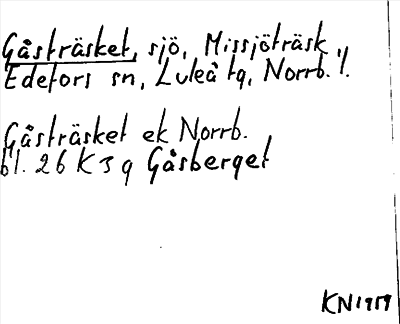 Gåsträsket, sjö, Missjöträsk,
Edefors sn, Luleå tg, Norrb. l.
Gåsträsket ek Norrb.
bl. 26 K 3 g Gåsberget
KN1959